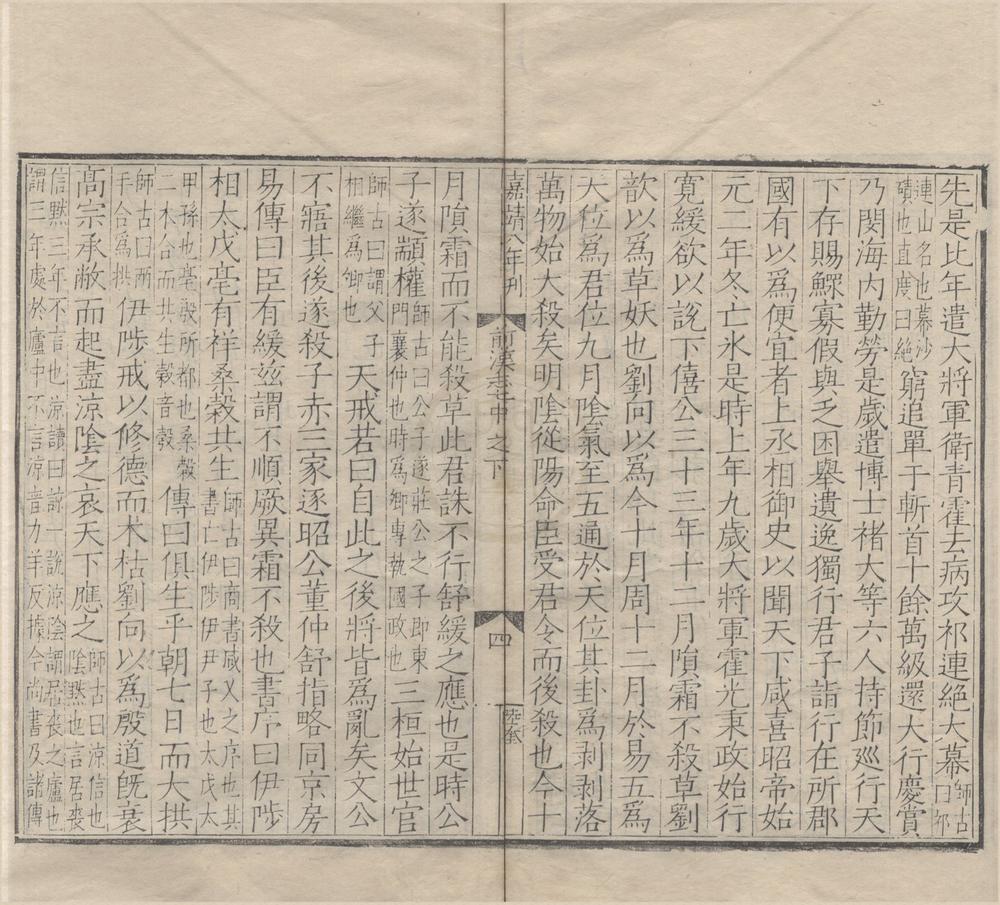 先是比年遣大將軍衛青霍去病攻祁連絶大幕師古曰祁
連山名也幕沙磧也直度曰絶窮追單于斬首十餘萬級還大行慶賞
乃閔海内勤勞是歳遣博士褚大等六人持節巡行天
下存賜鰥寡假與乏困舉遺逸獨行君子詣行在所郡
國有以爲便宜者上丞相御史以聞天下咸喜昭帝始
元二年冬亡氷是時上年九歲大將軍霍光秉政始行
寛緩欲以說下僖公三十三年十二月隕霜不殺草劉
歆以爲草妖也劉向以爲今十月周十二月於易五爲
天位爲君位九月陰氣至五通於天位其卦爲剥剥落
萬物始大殺矣明陰從陽命臣受君令而後殺也今十
嘉靖八年刊
前漢志七中之下
四
月隕霜而不能殺草此君誅不行舒緩之應也是時公
子遂顓權師古曰公子遂莊公之子即東門襄仲也時爲卿專執國政也三桓始世官
師古曰謂父子相繼爲卿也天戒若曰自此之後將皆爲亂矣文公
不寤其後遂殺子赤三家逐昭公董仲舒指略同京房
易傳曰臣有緩兹謂不順厥異霜不殺也書序曰伊陟
相太戊亳有祥桑榖共生師古曰商書咸乂之序也其書亡伊陟伊尹子也太戊太
甲孫也亳殷所都也桑榖二木合而共生榖音穀傳曰俱生乎朝七日而大拱
師古曰兩手合爲拱伊陟戒以修德而木枯劉向以爲殷道旣衰
髙宗承敝而起盡涼陰之哀天下應之師古曰涼信也陰黙也言居喪
信黙三年不言也涼讀曰諒一說涼陰謂居喪之廬也謂三年處於廬中不言涼音力羊反據今尚書及諸傳